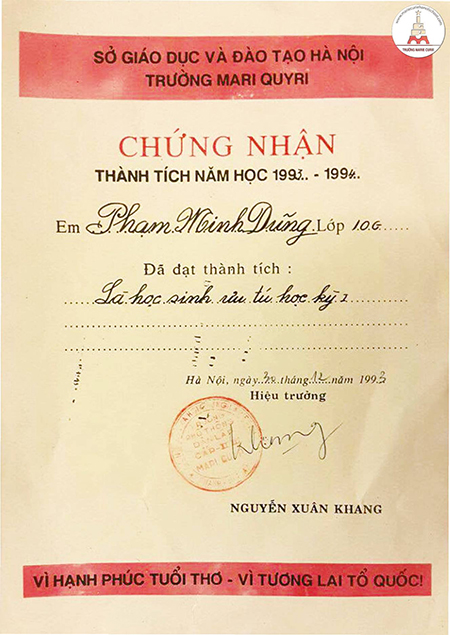 TRƯỜNG MARIE CURIE
SỞ GIÁO DỤC VÀ ĐÀO TẠO HÀ NỘI
TRƯỜNG MARI QUYRI
CHỨNG NHẬN
THÀNH TÍCH NĂM HỌC 1993.. - 1994.
Em Phạm Minh Dũng Lớp 10G.....
Đã đạt thành tích :
Là học sinh ưu tú học kỳ I
Hà Nội, ngày tháng 12 năm 1993
Hiệu trưởng
Khang
CẤP
MARI
NGUYỄN XUÂN KHANG
VÌ HẠNH PHÚC TUỔI THƠ - VÌ TƯƠNG LAI TỔ QUỐC!